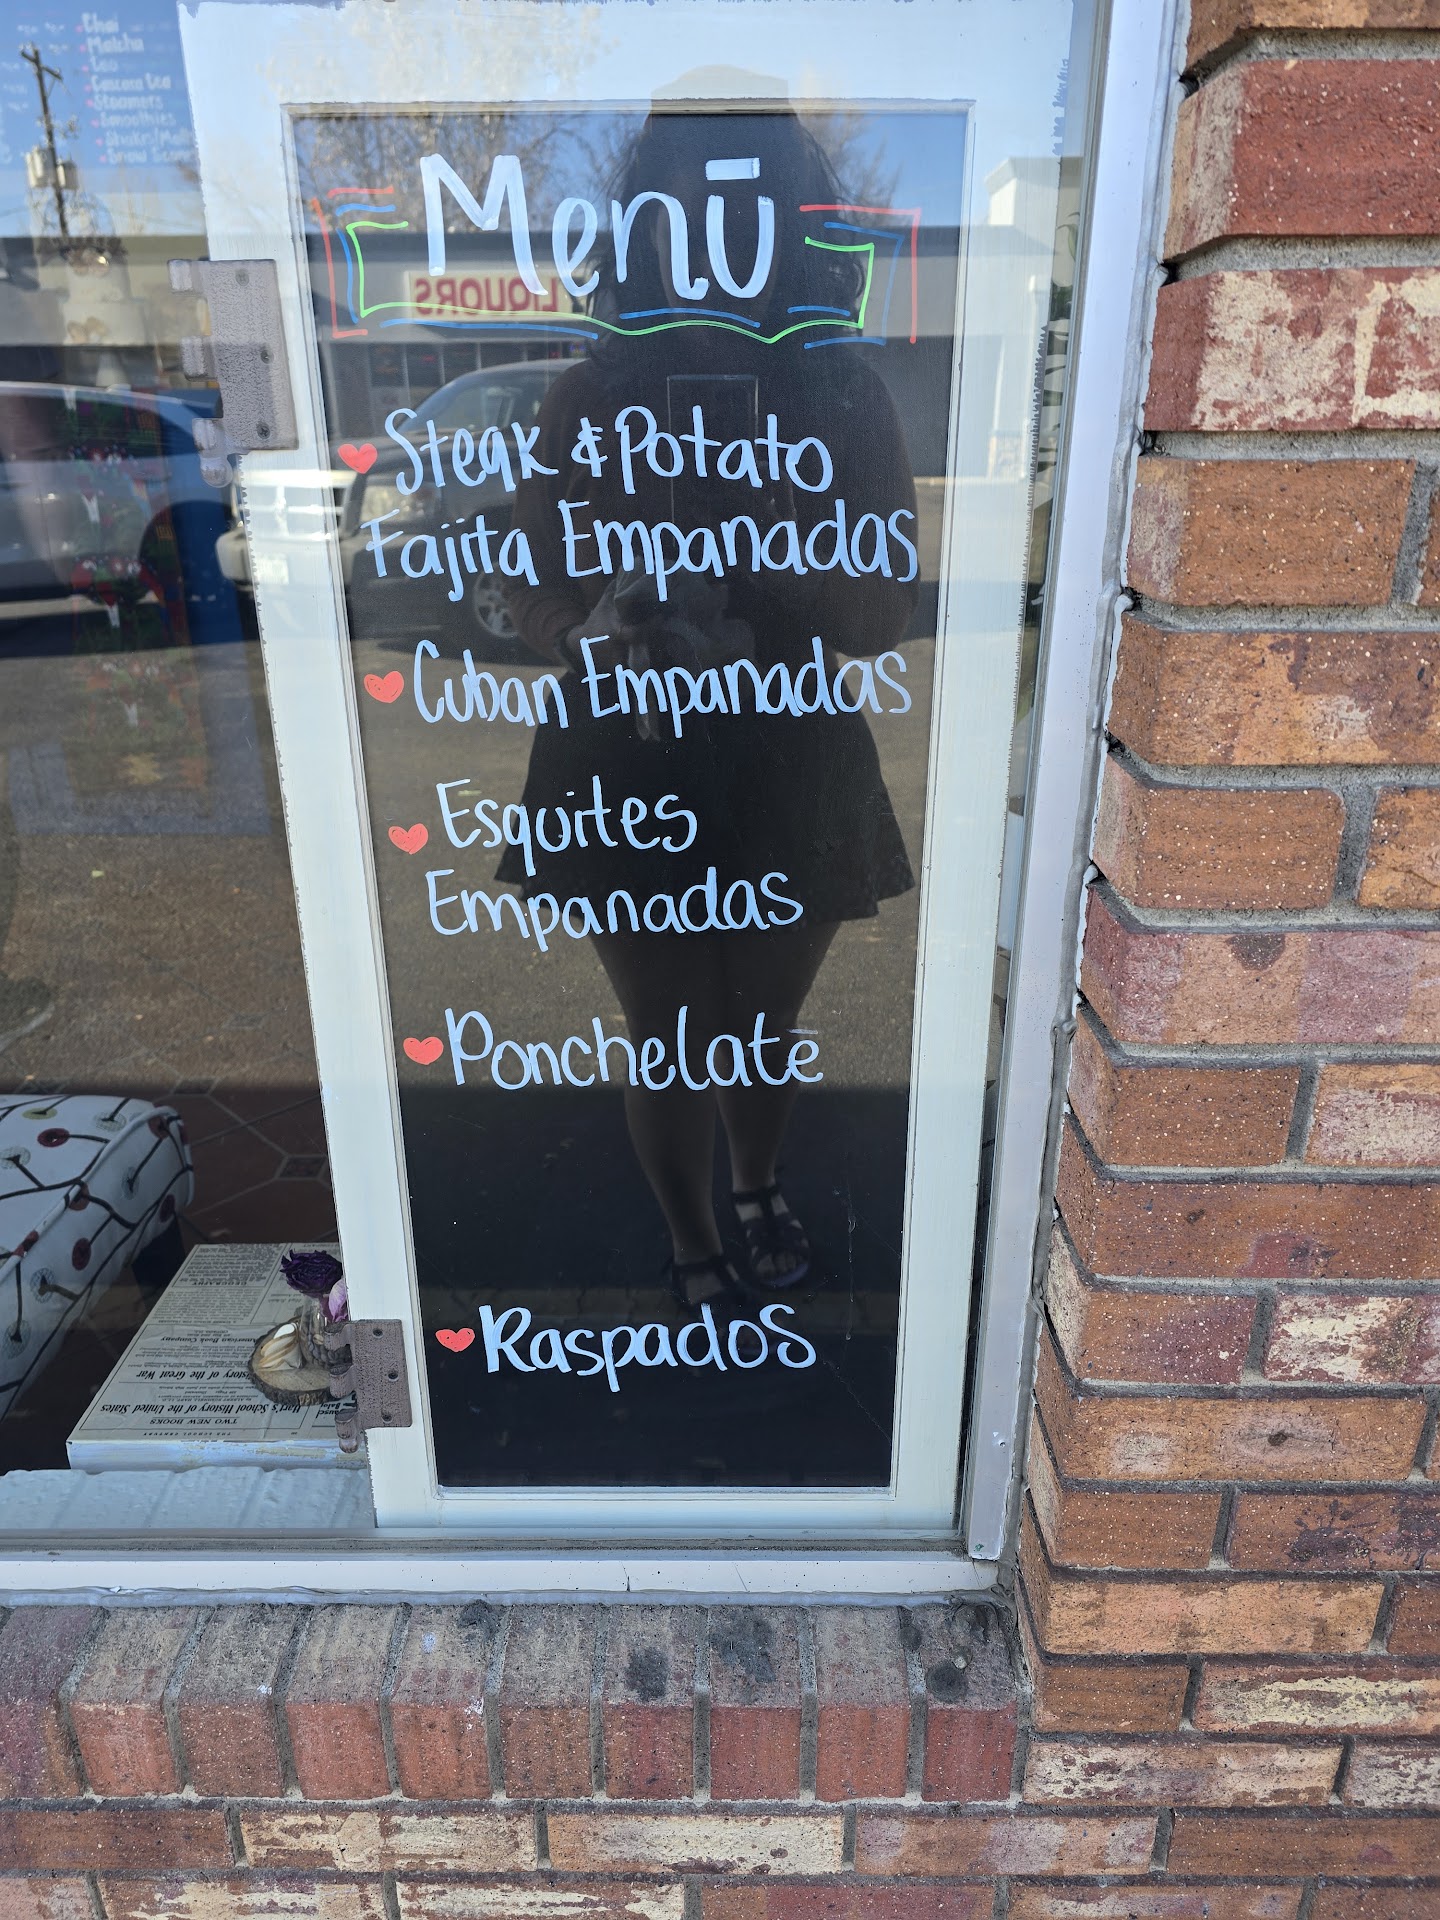 Chai
Matcha
Tea
Cascara tea
Steamers
Smoothies
Menū
LIQUORS
Steak & Potato
Fajita Empanadas
Cuban Empanadas
Esquites
Empanadas
Ponchelatē
Raspados
TWO NEW BOOKS
Hart's School History of the United States
History of the Great War
American Book Company